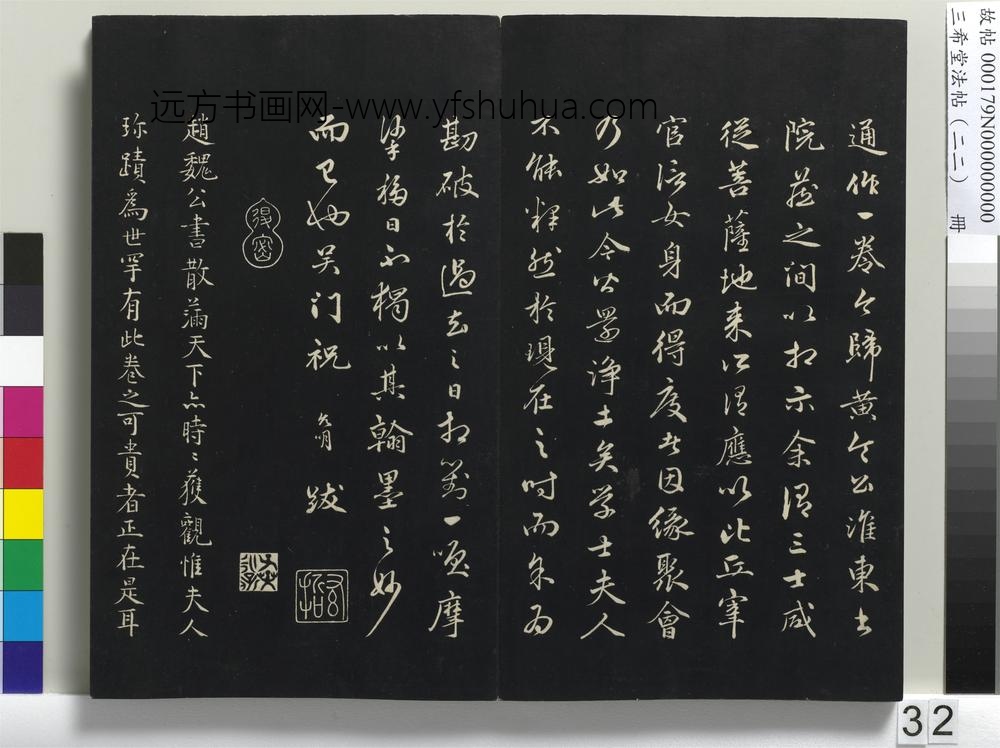 通作一卷今歸黄令公淮東書
院蓋之間以相示余谓三士咸
從菩薩地來江谓應以比丘宰
官信女身而得度者因緣聚會
乃如此今公置浄土矣学士夫人
不能釋然於現在之时而余为
勘破於過去之日相對一嘘摩
挲穷日不獨以其翰墨之妙
而已也吴门祝允明跋
趙魏公書散滿天下亦時〻獲觀惟夫人
珎蹟爲世罕有此卷之可貴者正在是耳
远方书画网-www.yfshuhua.com
故帖 000179N000000000
三希堂法帖（二二） 册
32